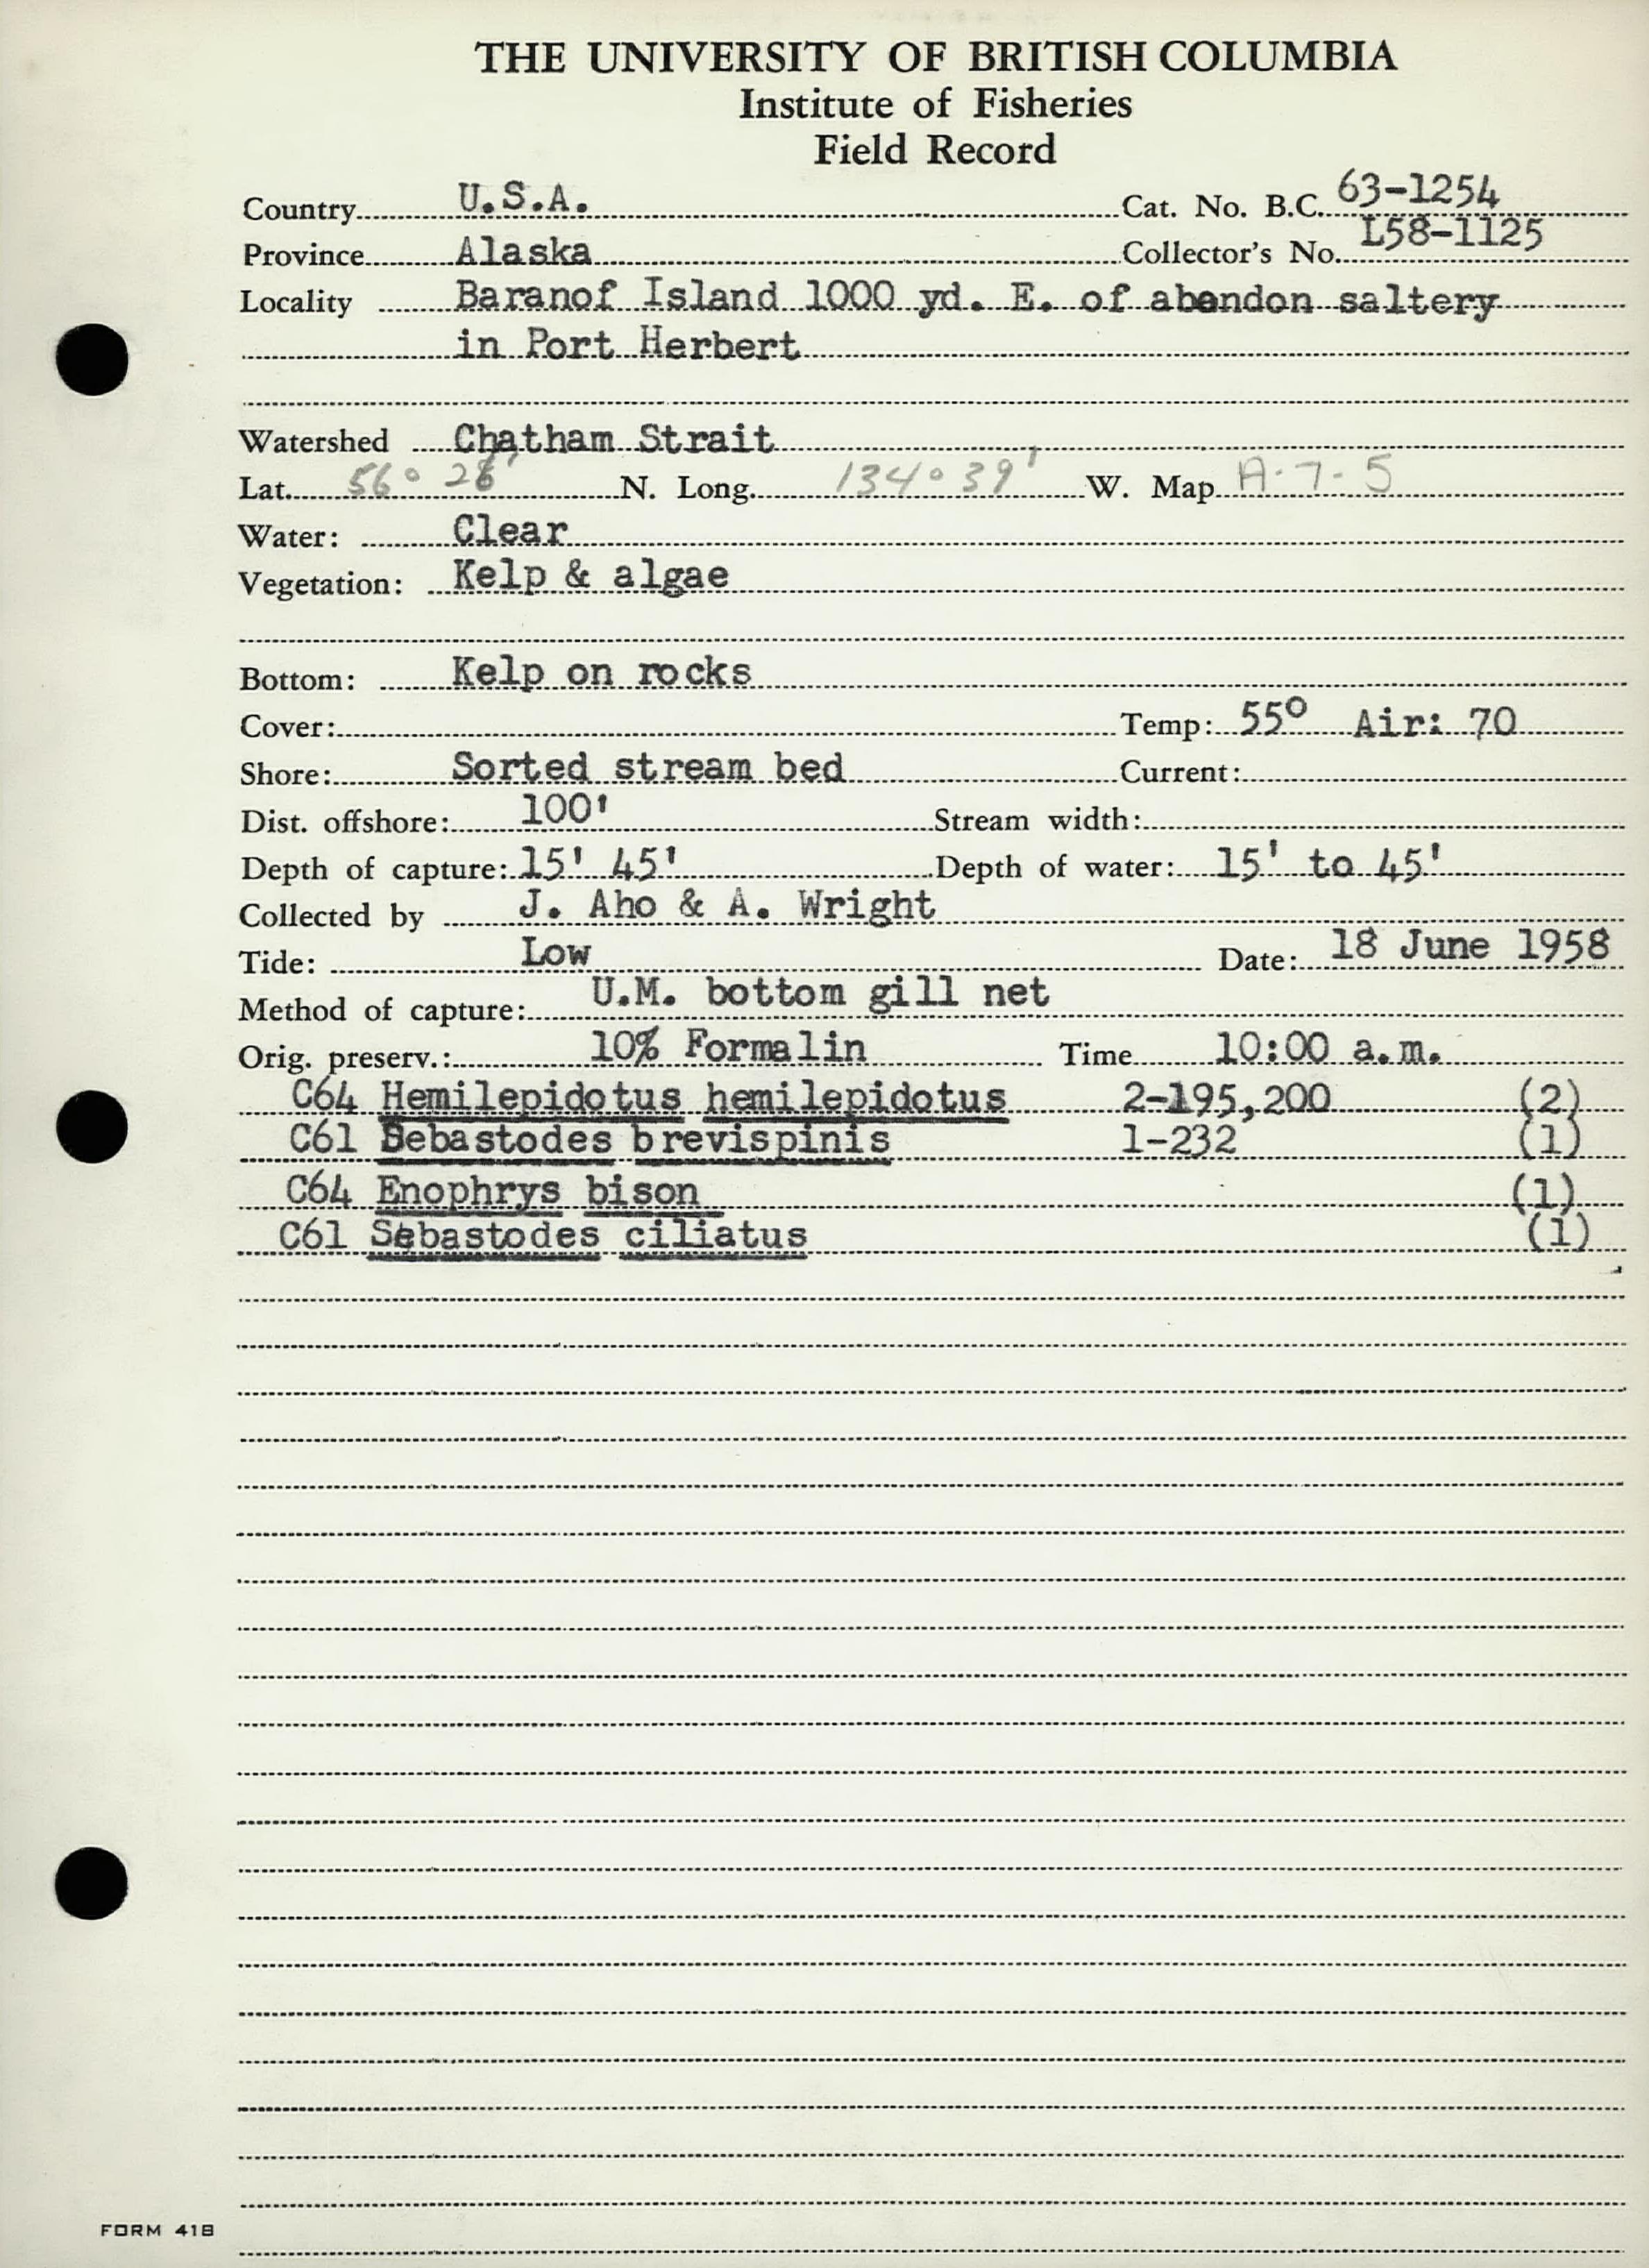 THE UNIVERSITY OF BRITISH COLUMBIA
Institute of Fisheries
Field Record
Country U.S.A. Cat. No. B.C. 63-1254
Province Alaska Collector's No. L58-1125
Locality Baranof Island 1000 yd. E. of abandon saltery
in Port Herbert
Watershed Chatham Strait
Lat. 56° 28' N. Long. 134° 39' W. Map A-7-5
Water: Clear
Vegetation: Kelp & algae
Bottom: Kelp on rocks
Cover: Temp: 55° Air: 70
Shore: Sorted stream bed Current:
Dist. offshore: 100' Stream width:
Depth of capture: 15' 45' Depth of water: 15' to 45'
Collected by J. Aho & A. Wright
Tide: Low Date: 18 June 1958
Method of capture: U.M. bottom gill net
Orig. preserv.: 10% Formalin Time 10:00 a.m.
C64 Hemilepidotus hemilepidotus 2-195,200 (2)
C61 Sebastodes brevispinis 1-232 (1)
C64 Enophrys bison (1)
C61 Sebastodes ciliatus (1)
FORM 418